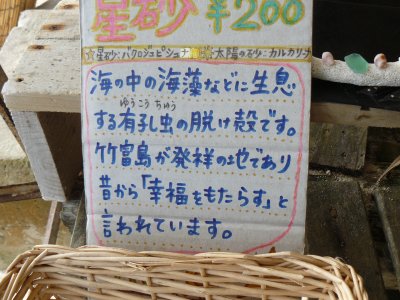 星砂 ¥200
☆星砂:バクロジュピシュナ 太陽の砂:カルカリナ
海の中の海藻などに生息
ゆうこうちゅう
する有孔虫の脱け殻です。
竹富島が発祥の地であり
昔から「幸福をもたらす」と
言われています。